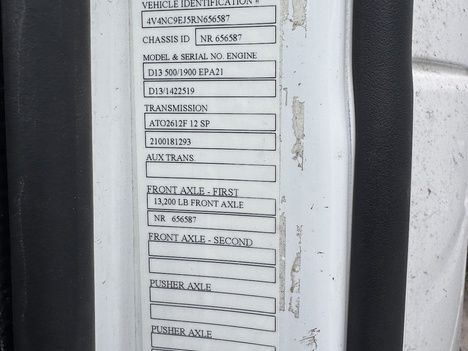 VEHICLE IDENTIFICATION #
4V4NC9EJ5RN656587
CHASSIS ID NR 656587
MODEL & SERIAL NO. ENGINE
D13 500/1900 EPA21
D13/1422519
TRANSMISSION
ATO2612F 12 SP
2100181293
AUX TRANS
FRONT AXLE - FIRST
13,200 LB FRONT AXLE
NR 656587
FRONT AXLE - SECOND
PUSHER AXLE
PUSHER AXLE